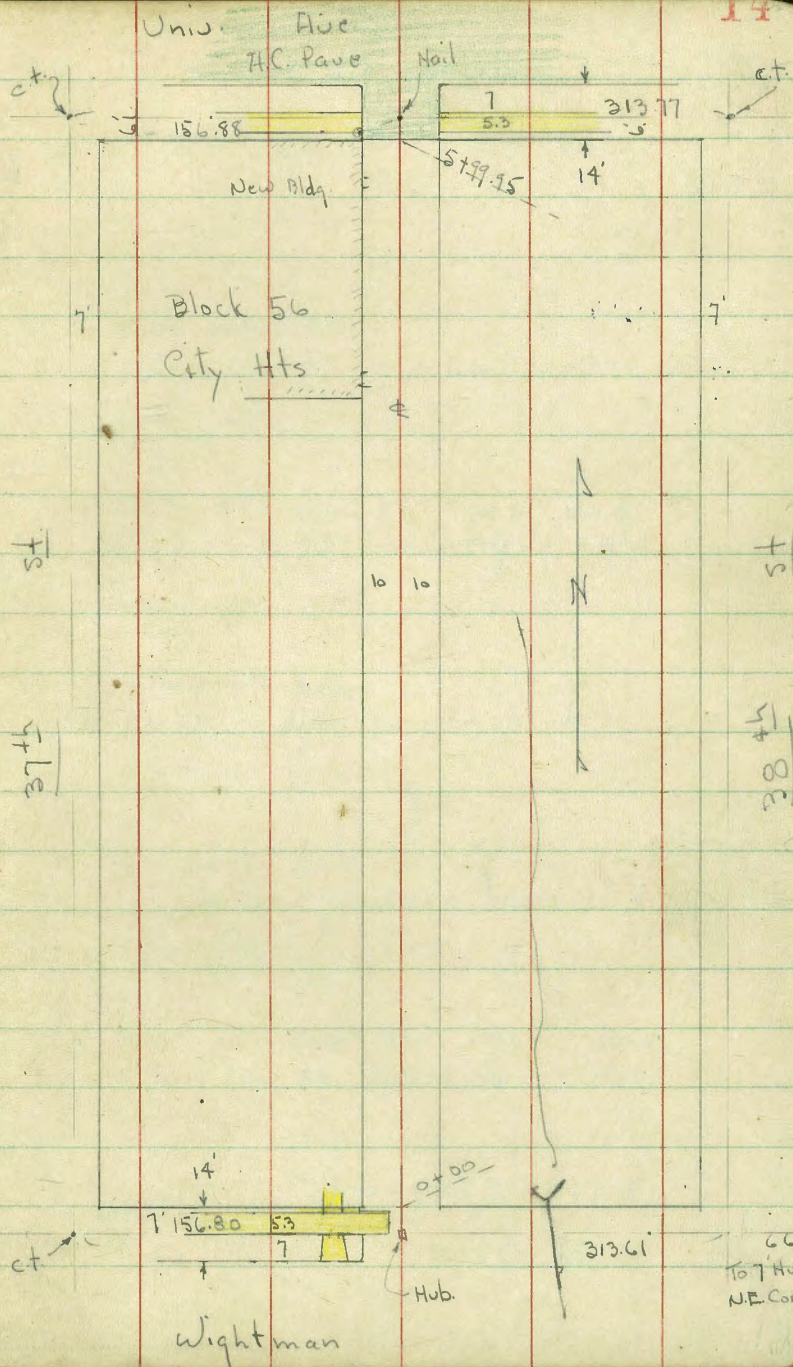 14
Univ. Ave
A.C. Pave
Nail
c.t.
c.t.
156.88
7
5.3
313.77
14'
5+99.95
New Bldg
7'
7'
Block 56
City Hts
℄
10 10
N
37th St
38th St
14'
0+00
7' 156.80 5.3
7
313.61'
c.t.
Hub.
66
To 7' Hu
N.E. Cor
Wightman